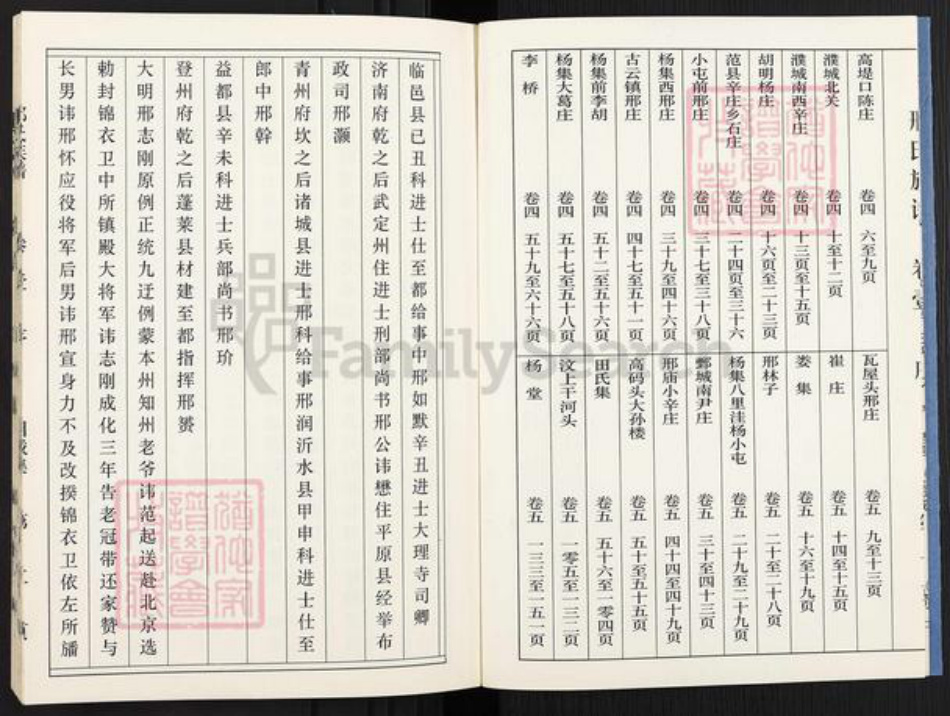 高堤口陈庄 卷四 六至九页
濮城北关 卷四 十至十二页
濮城南西辛庄 卷四 十三页至十五页
胡明杨庄 卷四 十六页至二十三页
范县辛庄乡石庄 卷四 二十四页至三十六
小屯前邢庄 卷四 三十七至三十八页
杨集西邢庄 卷四 三十九至四十六页
古云镇邢庄 卷四 四十七至五十一页
杨集前李胡 卷四 五十二至五十六页
杨集大葛庄 卷四 五十七至五十八页
李桥 卷四 五十九至六十六页
瓦屋头邢庄 卷五 九至十三页
崔庄 卷五 十四至十五页
娄集 卷五 十六至十九页
邢林子 卷五 二十至二十八页
杨集八里洼杨小屯 卷五 二十九至二十九页
鄄城南尹庄 卷五 三十至四十三页
邢庙小辛庄 卷五 四十四至四十九页
高码头大孙楼 卷五 五十至五十五页
田氏集 卷五 五十六至一零四页
汶上干河头 卷五 一零五至一三二页
杨堂 卷五 一三三至一五一页
临邑县已丑科进士仕至都给事中邢如默辛丑进士大理寺司卿
济南府乾之后武定州住进士刑部尚书邢公讳懋住平原县经举布
政司邢灏
青州府坎之后诸城县进士邢科给事邢润沂水县甲申科进士仕至
郎中邢幹
益都县辛未科进士兵部尚书邢玠
登州府乾之后蓬莱县材建至都指挥邢赟
大明邢志刚原例正统九迂例蒙本州知州老爷讳范起送赴北京选
勅封锦衣卫中所镇殿大将军讳志刚成化三年告老冠带还家赞与
长男讳邢怀应役将军后男讳邢宣身力不及改揆锦衣卫依左所旛
FamilySearch